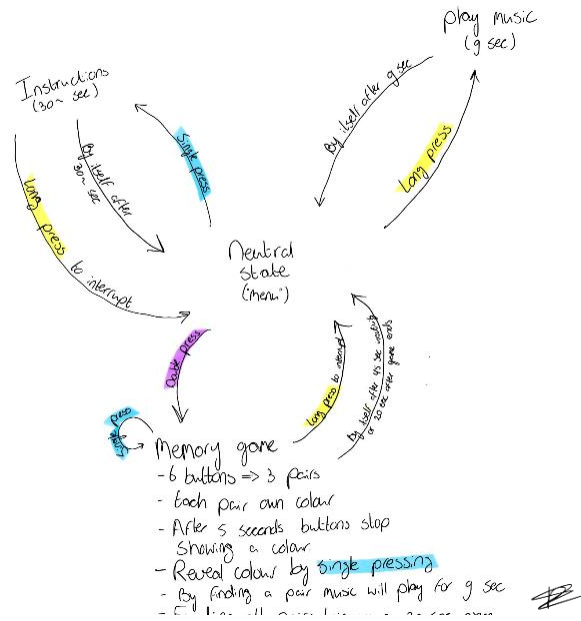 play music
(9 sec)
Instructions
(30~ sec)
By itself after 9 sec
Long press
Single press
By itself after
30~ sec
Long press to interrupt
Neutral
state
("Menu")
Double press
Long press to interrupt
By itself after 45 sec
or 20 sec after game ends
Memory game
- 6 buttons => 3 pairs
- Each pair own colour
- After 5 seconds buttons stop
showing a colour
- Reveal colour by single pressing
- By finding a pair music will play for 9 sec